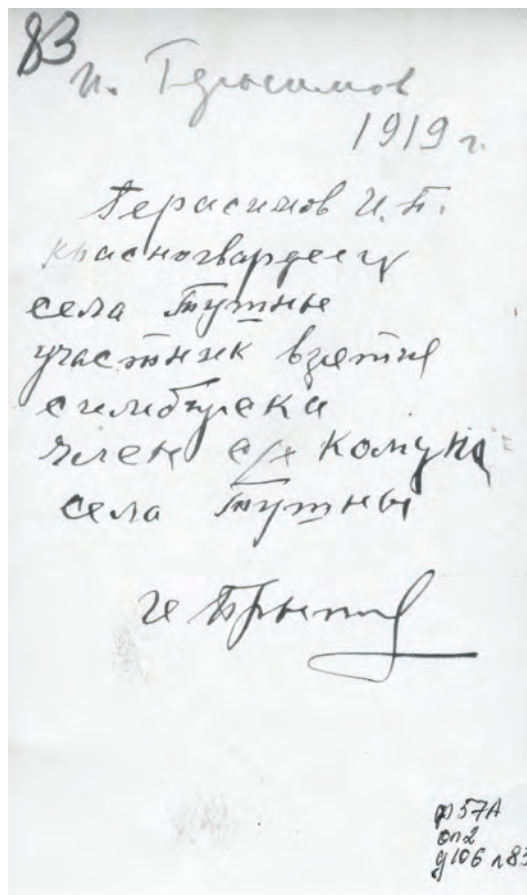 83
И. Герасимов
1919 г.
Герасимов И. П.
красногвардеец
села Тушны
участник взятие
симбирска
член с/х комуна
села Тушны
И
ф 57А
оп 2
д 106 л 83